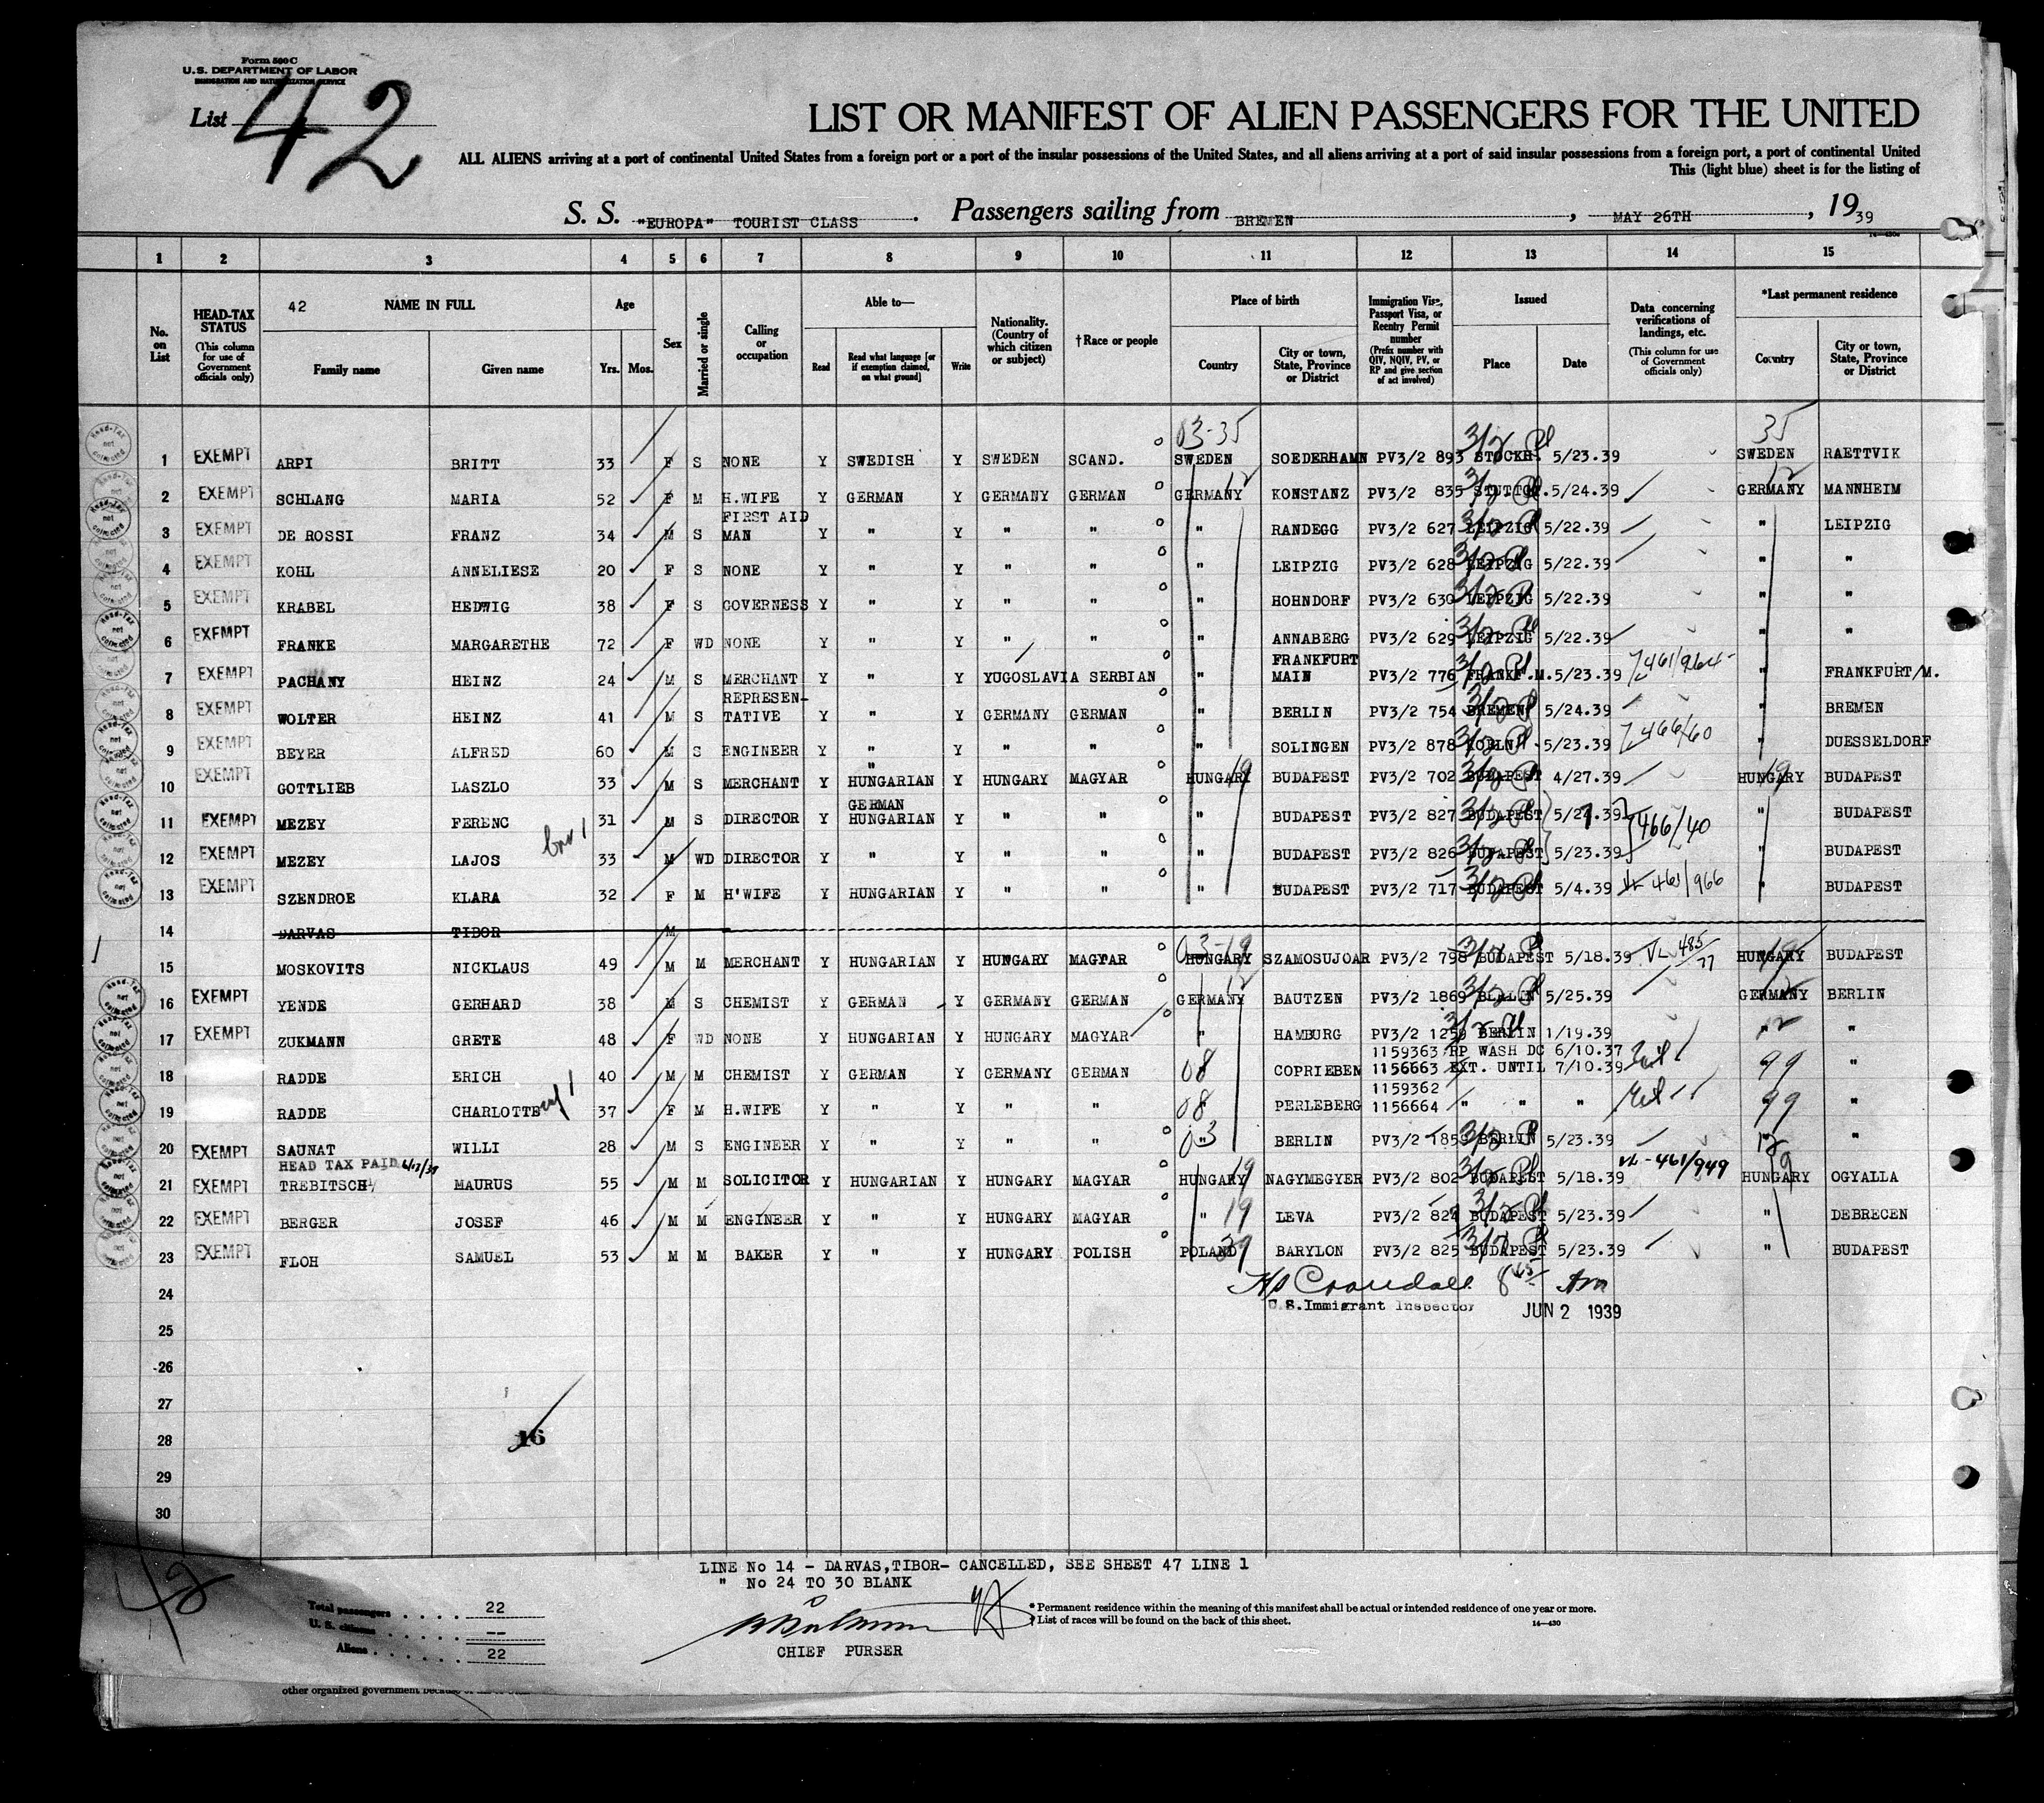 Form 500 C
U.S. DEPARTMENT OF LABOR
IMMIGRATION AND NATURALIZATION SERVICE
List 42
LIST OR MANIFEST OF ALIEN PASSENGERS FOR THE UNITED
ALL ALIENS arriving at a port of continental United States from a foreign port or a port of the insular possessions of the United States, and all aliens arriving at a port of said insular possessions from a foreign port, a port of continental United
This (light blue) sheet is for the listing of
S. S. "EUROPA" TOURIST CLASS . Passengers sailing from BREMEN , MAY 26TH , 19 39
1 2 3 4 5 6 7 8 9 10 11 12 13 14 15
No. on List
HEAD-TAX STATUS (This column for use of Government officials only)
42 NAME IN FULL
Family name Given name
Age Yrs. Mos.
Sex
Married or single
Calling or occupation
Able to—
Read Read what language [or if exemption claimed, on what ground] Write
Nationality. (Country of which citizen or subject)
†Race or people
Place of birth
Country City or town, State, Province or District
Immigration Visa, Passport Visa, or Reentry Permit number (Prefix number with QIV, NQIV, PV, or RP and give section of act involved)
Issued
Place Date
Data concerning verifications of landings, etc. (This column for use of Government officials only)
*Last permanent residence
Country City or town, State, Province or District
03-35 35
1 EXEMPT ARPI BRITT 33 F S NONE Y SWEDISH Y SWEDEN SCAND. SWEDEN SOEDERHAMN PV3/2 893 STOCKH. 5/23.39 SWEDEN RAETTVIK
2 EXEMPT SCHLANG MARIA 52 F M H.WIFE Y GERMAN Y GERMANY GERMAN GERMANY 12 KONSTANZ PV3/2 835 STUTTG. 5/24.39 GERMANY 12 MANNHEIM
3 EXEMPT DE ROSSI FRANZ 34 M S FIRST AID MAN Y " Y " " " RANDEGG PV3/2 627 LEIPZIG 5/22.39 " LEIPZIG
4 EXEMPT KOHL ANNELIESE 20 F S NONE Y " Y " " " LEIPZIG PV3/2 628 LEIPZIG 5/22.39 " "
5 EXEMPT KRABEL HEDWIG 38 F S GOVERNESS Y " Y " " " HOHNDORF PV3/2 630 LEIPZIG 5/22.39 " "
6 EXEMPT FRANKE MARGARETHE 72 F WD NONE Y " Y " " " ANNABERG PV3/2 629 LEIPZIG 5/22.39 " "
7 EXEMPT PACHANY HEINZ 24 M S MERCHANT Y " Y YUGOSLAVIA SERBIAN " FRANKFURT MAIN PV3/2 776 FRANKF.M. 5/23.39 461/964 " FRANKFURT/M.
8 EXEMPT WOLTER HEINZ 41 M S REPRESEN-TATIVE Y " Y GERMANY GERMAN " BERLIN PV3/2 754 BREMEN 5/24.39 " BREMEN
9 EXEMPT BEYER ALFRED 60 M S ENGINEER Y " Y " " " SOLINGEN PV3/2 878 KOELN 5/23.39 466/60 " DUESSELDORF
10 EXEMPT GOTTLIEB LASZLO 33 M S MERCHANT Y " HUNGARIAN Y HUNGARY MAGYAR HUNGARY 19 BUDAPEST PV3/2 702 BUDAPEST 4/27.39 HUNGARY 19 BUDAPEST
11 EXEMPT MEZEY FERENC 31 M S DIRECTOR Y GERMAN HUNGARIAN Y " " " BUDAPEST PV3/2 827 BUDAPEST 5/24.39 466/40 " BUDAPEST
12 EXEMPT MEZEY LAJOS 33 M WD DIRECTOR Y " Y " " " BUDAPEST PV3/2 826 BUDAPEST 5/23.39 " BUDAPEST
13 EXEMPT SZENDROE KLARA 32 F M H'WIFE Y HUNGARIAN Y " " " BUDAPEST PV3/2 717 BUDAPEST 5/4.39 VL 461/966 " BUDAPEST
14 DARVAS TIBOR M
15 MOSKOVITS NICKLAUS 49 M M MERCHANT Y HUNGARIAN Y HUNGARY MAGYAR 03-19 HUNGARY SZAMOSUJOAR PV3/2 798 BUDAPEST 5/18.39 VL 485/77 HUNGARY 19 BUDAPEST
16 EXEMPT YENDE GERHARD 38 M S CHEMIST Y GERMAN Y GERMANY GERMAN GERMANY 12 BAUTZEN PV3/2 1869 BERLIN 5/25.39 GERMANY BERLIN
17 EXEMPT ZUKMANN GRETE 48 F WD NONE Y HUNGARIAN Y HUNGARY MAGYAR " HAMBURG PV3/2 1259 BERLIN 1/19.39 " "
18 RADDE ERICH 40 M M CHEMIST Y GERMAN Y GERMANY GERMAN 08 COPRIEBEN 1159363 RP WASH DC 6/10.37 1156663 EXT. UNTIL 7/10.39 99 "
19 RADDE CHARLOTTE 37 F M H.WIFE Y " Y " " 08 PERLEBERG 1159362 1156664 " " " 99 "
20 EXEMPT SAUNAT WILLI 28 M S ENGINEER Y " Y " " 03 " BERLIN PV3/2 1859 BERLIN 5/23.39 12 "
HEAD TAX PAID
21 EXEMPT TREBITSCH MAURUS 55 M M SOLICITOR Y HUNGARIAN Y HUNGARY MAGYAR HUNGARY 19 NAGYMEGYER PV3/2 802 BUDAPEST 5/18.39 VL-461/949 HUNGARY 19 OGYALLA
22 EXEMPT BERGER JOSEF 46 M M ENGINEER Y " Y HUNGARY MAGYAR " 19 LEVA PV3/2 824 BUDAPEST 5/23.39 " DEBRECEN
23 EXEMPT FLOH SAMUEL 53 M M BAKER Y " Y HUNGARY POLISH POLAND 29 BARYLON PV3/2 825 BUDAPEST 5/23.39 " BUDAPEST
24
U.S.Immigrant Inspector JUN 2 1939
25
26
27
28 16
29
30
LINE No 14 - DARVAS,TIBOR- CANCELLED, SEE SHEET 47 LINE 1
" No 24 TO 30 BLANK
42
Total passengers . . . . 22
U. S. citizens . . . . --
Aliens . . . . . . 22
CHIEF PURSER
* Permanent residence within the meaning of this manifest shall be actual or intended residence of one year or more.
† List of races will be found on the back of this sheet.
14—430
other organized government